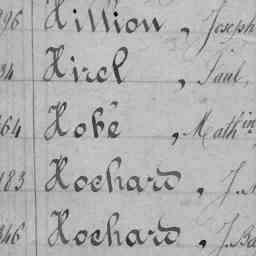 296 Hillion, Joseph
34 Hirel, Paul,
164 Hobé, Math in
183 Hochard, J.
346 Hochard, J. Ba